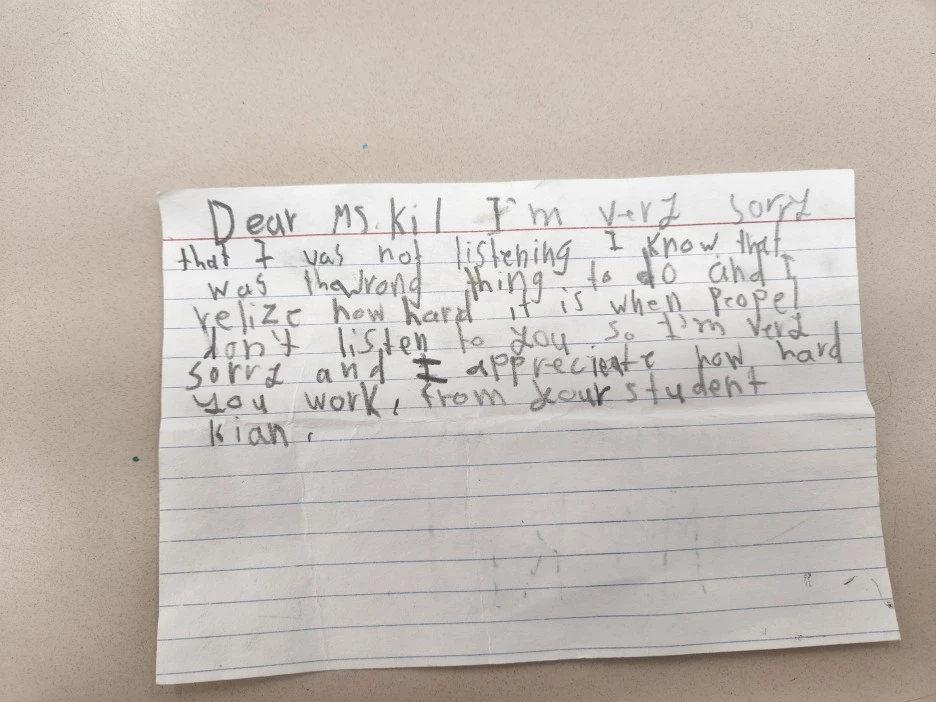 Dear Ms. Kil I'm very sorry
that I was not listening I know that
was thewrong thing to do and I
relize how hard it is when propel
don't listen to you so I'm very
sorry and I appreciate how hard
you work, from your student
Kian.